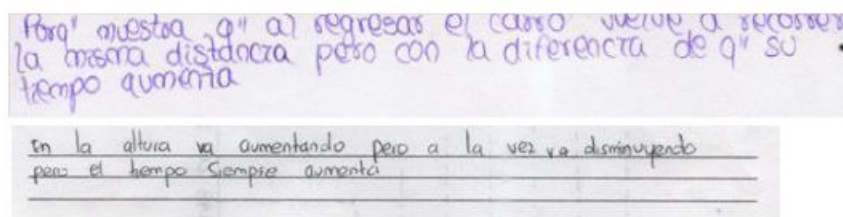 Porq" muestra q" al regresar el carro vuelve a recorrer
la misma distancia pero con la diferencia de q" su
tiempo aumenta
En la altura va aumentando pero a la vez va disminuyendo
pero el tiempo siempre aumenta